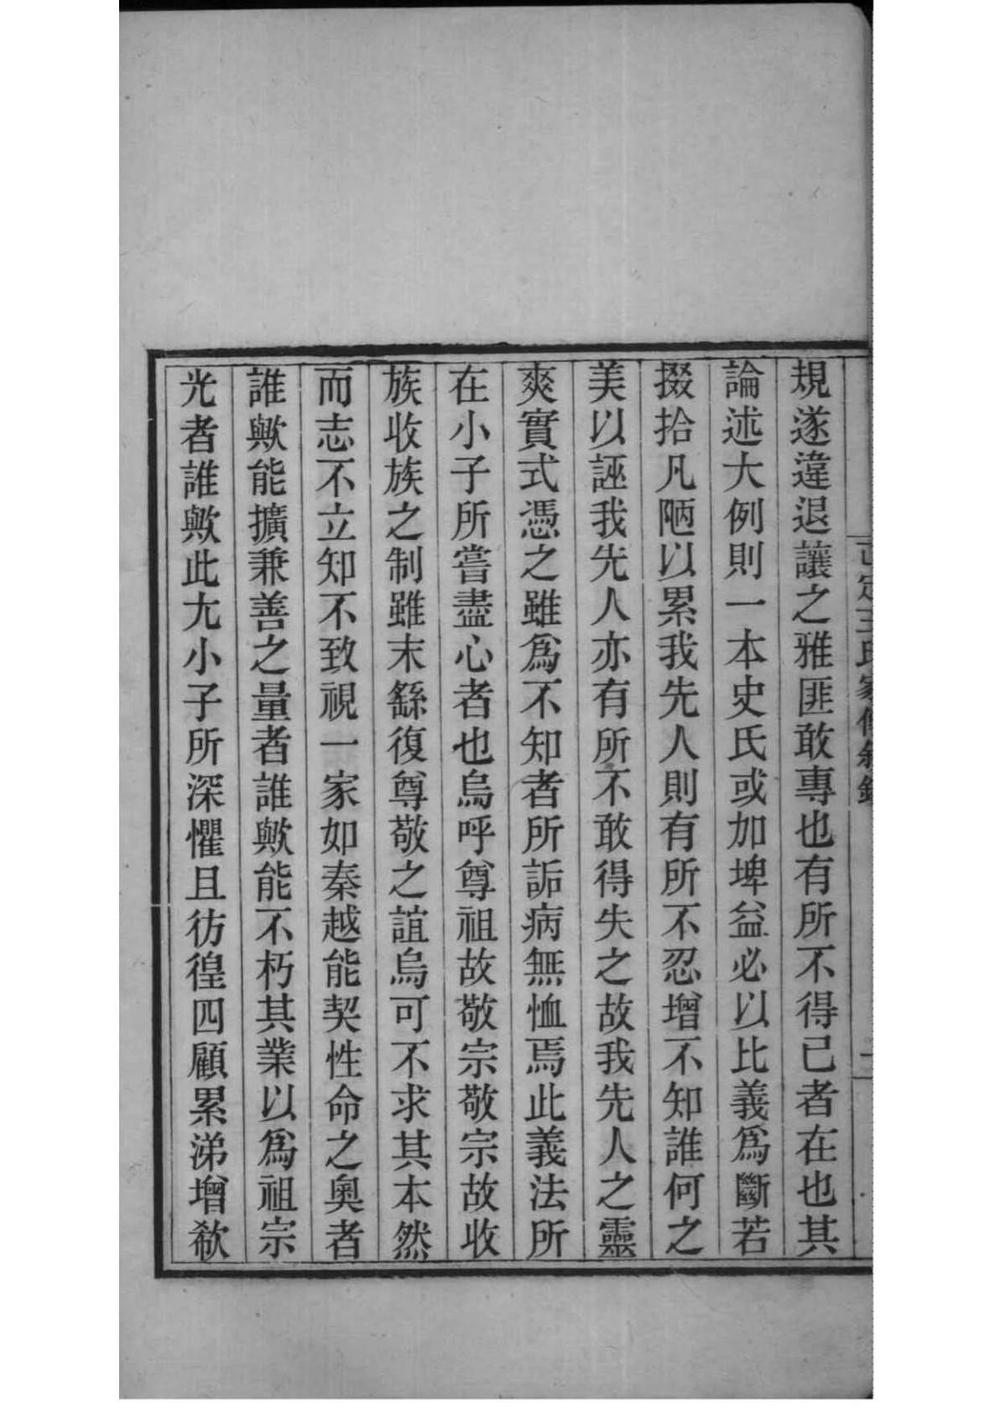 正定王氏家傳敘錄
規遂違退讓之雅匪敢專也有所不得已者在也其
論述大例則一本史氏或加埤益必以比義爲斷若
掇拾凡陋以累我先人則有所不忍增不知誰何之
美以誣我先人亦有所不敢得失之故我先人之靈
爽實式憑之雖爲不知者所詬病無恤焉此義法所
在小子所嘗盡心者也烏呼尊祖故敬宗敬宗故收
族收族之制雖末繇復尊敬之誼烏可不求其本然
而志不立知不致視一家如秦越能契性命之奧者
誰歟能擴兼善之量者誰歟能不朽其業以爲祖宗
光者誰歟此尢小子所深懼且彷徨四顧累涕增欷